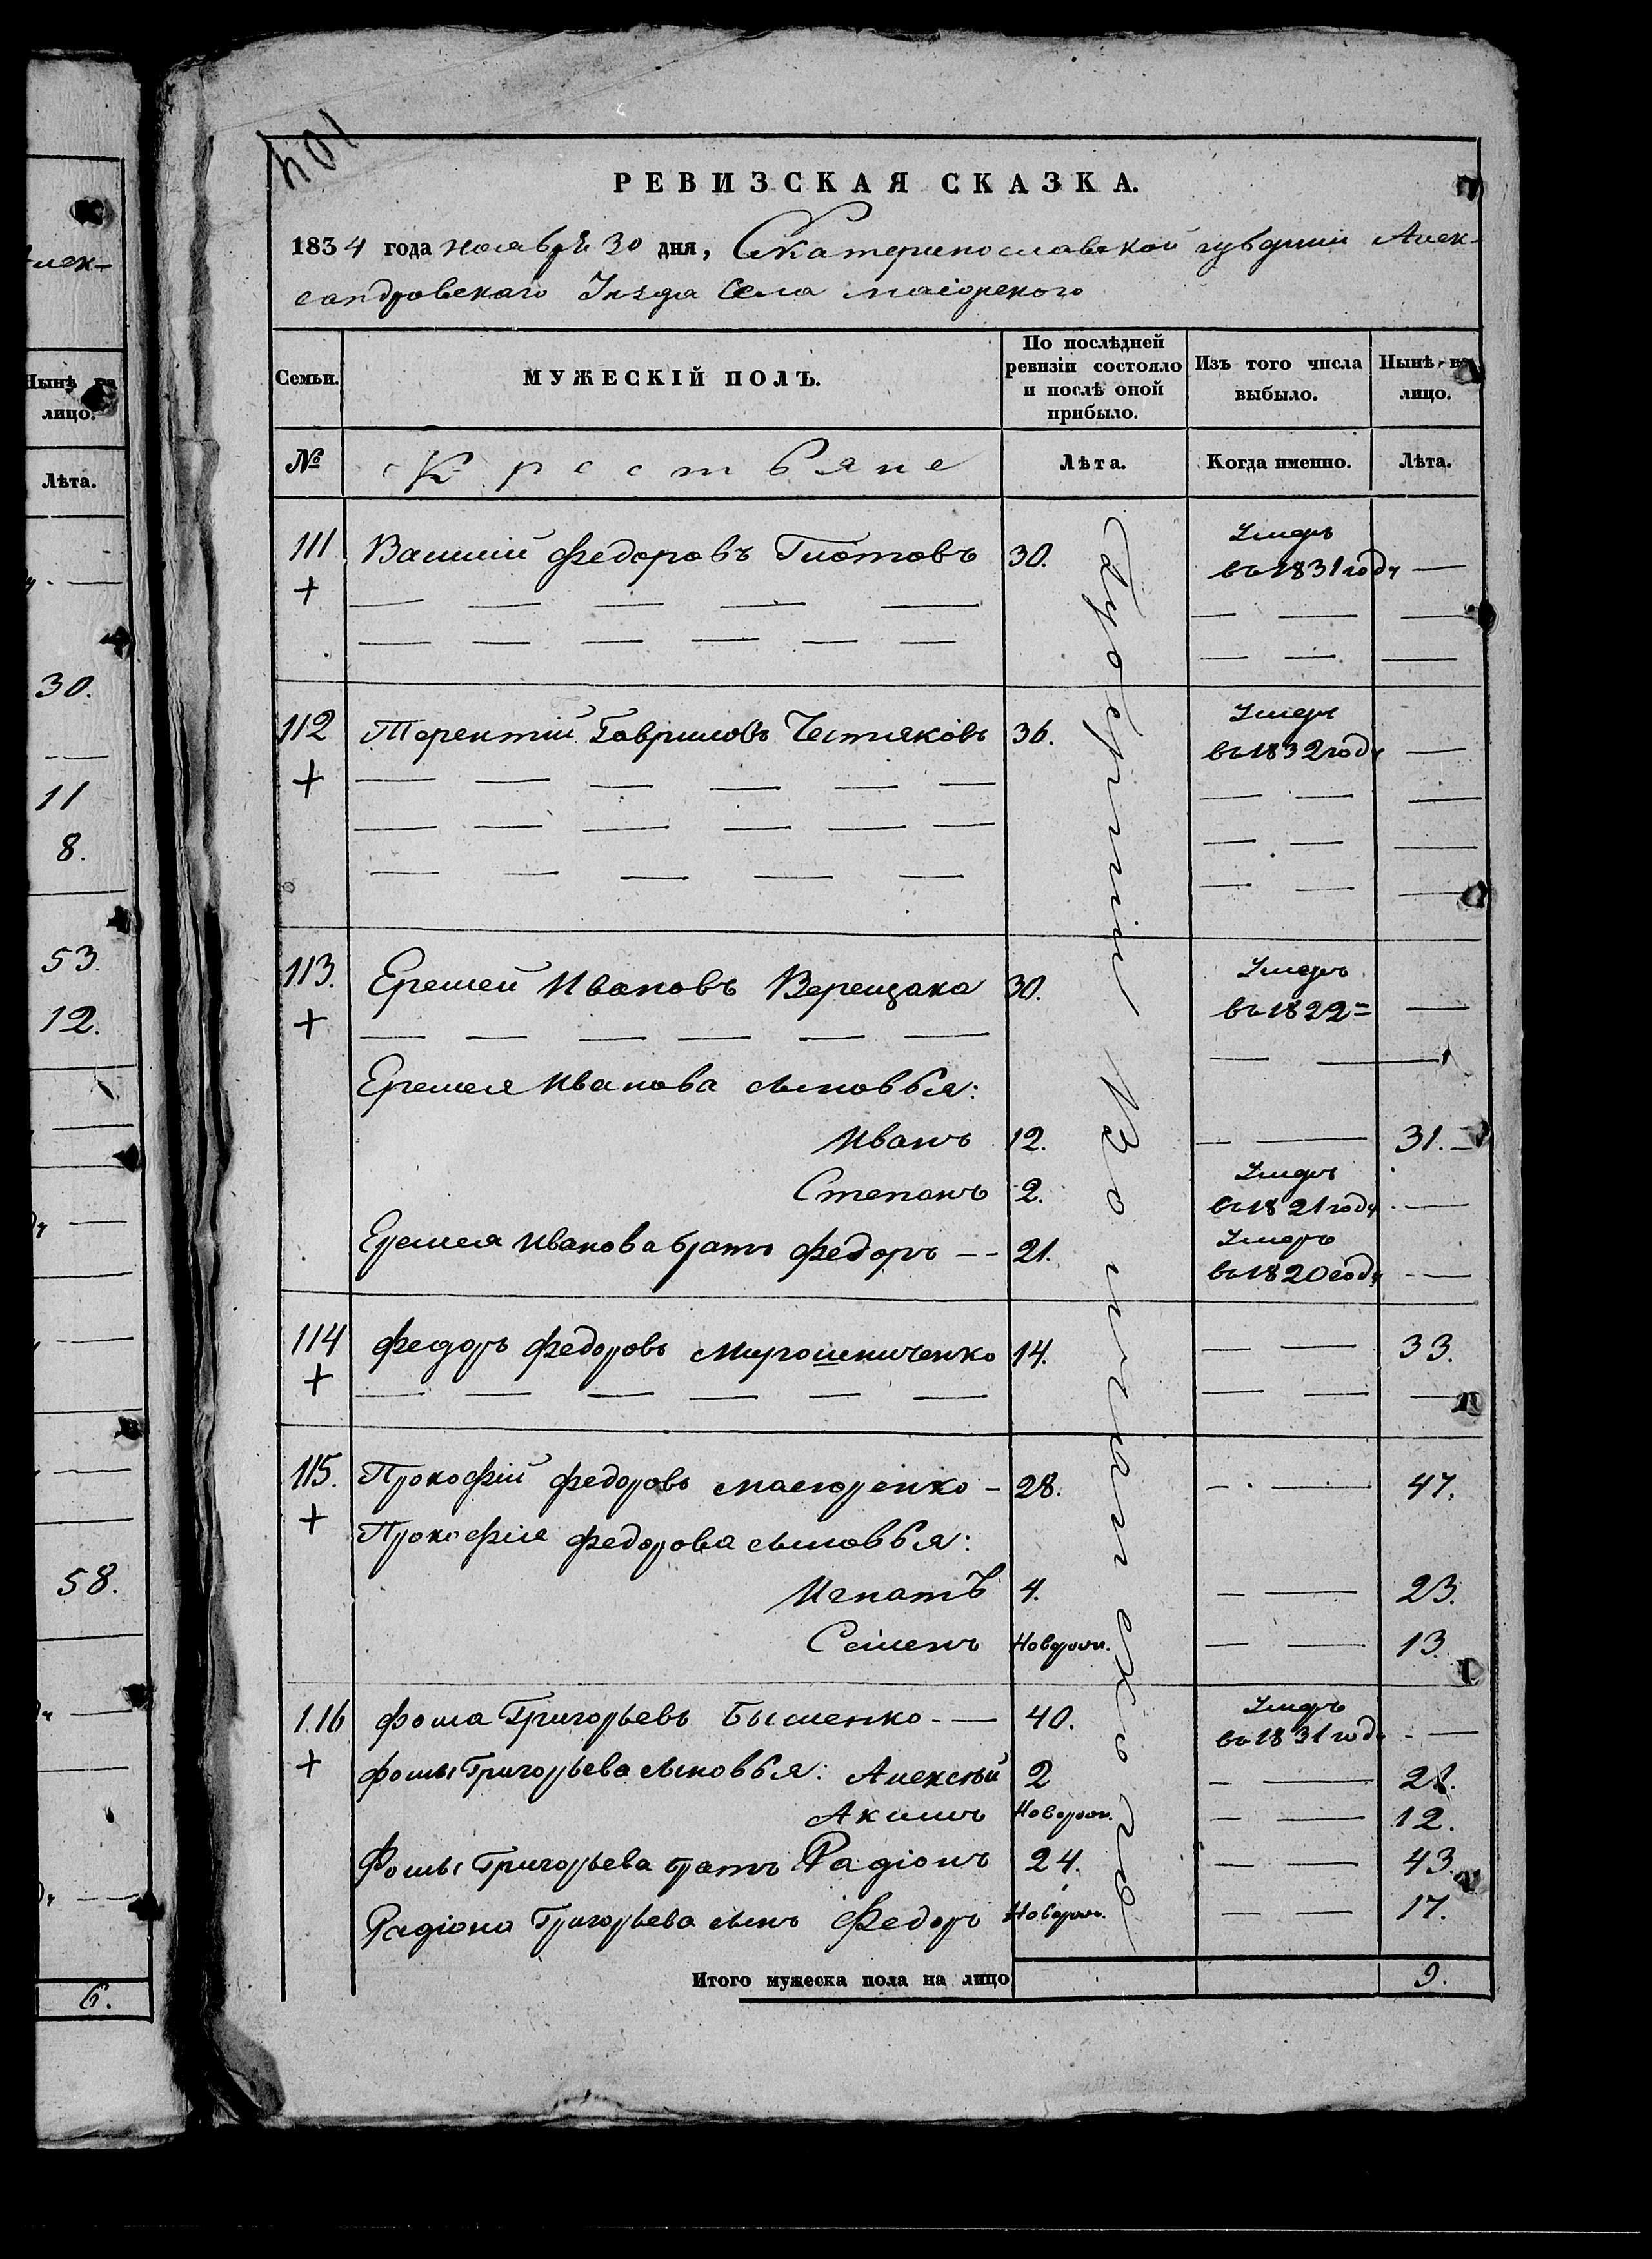 104
РЕВИЗСКАЯ СКАЗКА.
1834 года ноября 30 дня, Екатеринославской губерніи Алек-
сандровскаго Уѣзда Села маіорского
Семьи.
МУЖЕСКІЙ ПОЛЪ.
По послѣдней ревизіи состояло и послѣ оной прибыло.
Изъ того числа выбыло.
Нынѣ на лицо.
№
Крестьяне
Лѣта.
Когда именно.
Лѣта.
111 Василій Федоровъ 30. Умеръ въ 1831 году —
+
112 Терентій Гавриловъ Честняковъ 36. Умеръ въ 1832 году —
+
113. Еремей Ивановъ Верещака 30. Умеръ въ 1822 —
+
Еремея Иванова сыновья:
Иванъ 12. — — 31.
Степанъ 2. Умеръ въ 1821 году —
Еремея Иванова братъ Федоръ -- 21. Умеръ въ 1820 году —
114 Федоръ Федоровъ Мирошниченко 14. — — 33.
+
115. Прокофій Федоровъ — 28. — — 47.
+
Прокофія Федорова сыновья:
Игнатъ 4. — — 23.
Семенъ Новорож. — — 13.
116 Фома Григорьевъ — 40. Умеръ въ 1831 году —
+
Фомы Григорьева сыновья: Алексѣй 2 — — 21.
Акимъ Новорож. — — 12.
Фомы Григорьева братъ Радіонъ 24. — — 43.
Радіона Григорьева сынъ Федоръ Новорож. — — 17.
Итого мужеска пола на лицо 9.
Алек-
Нынѣ на
лицо.
Лѣта.
30.
11
8.
53.
12.
58.
6.